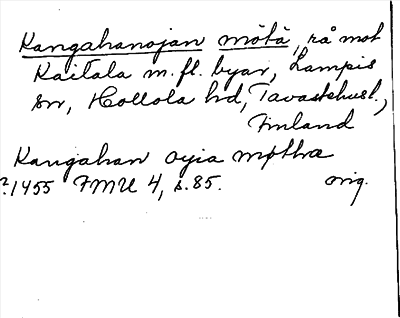 Kangahanojan mötä, rå mot
Kaitala m. fl. byar, Lampis
sn, Hollola hd, Tavastehusl.,
Finland
Kangahan oyia møthæ
?1455 FMU 4, s. 85. orig.